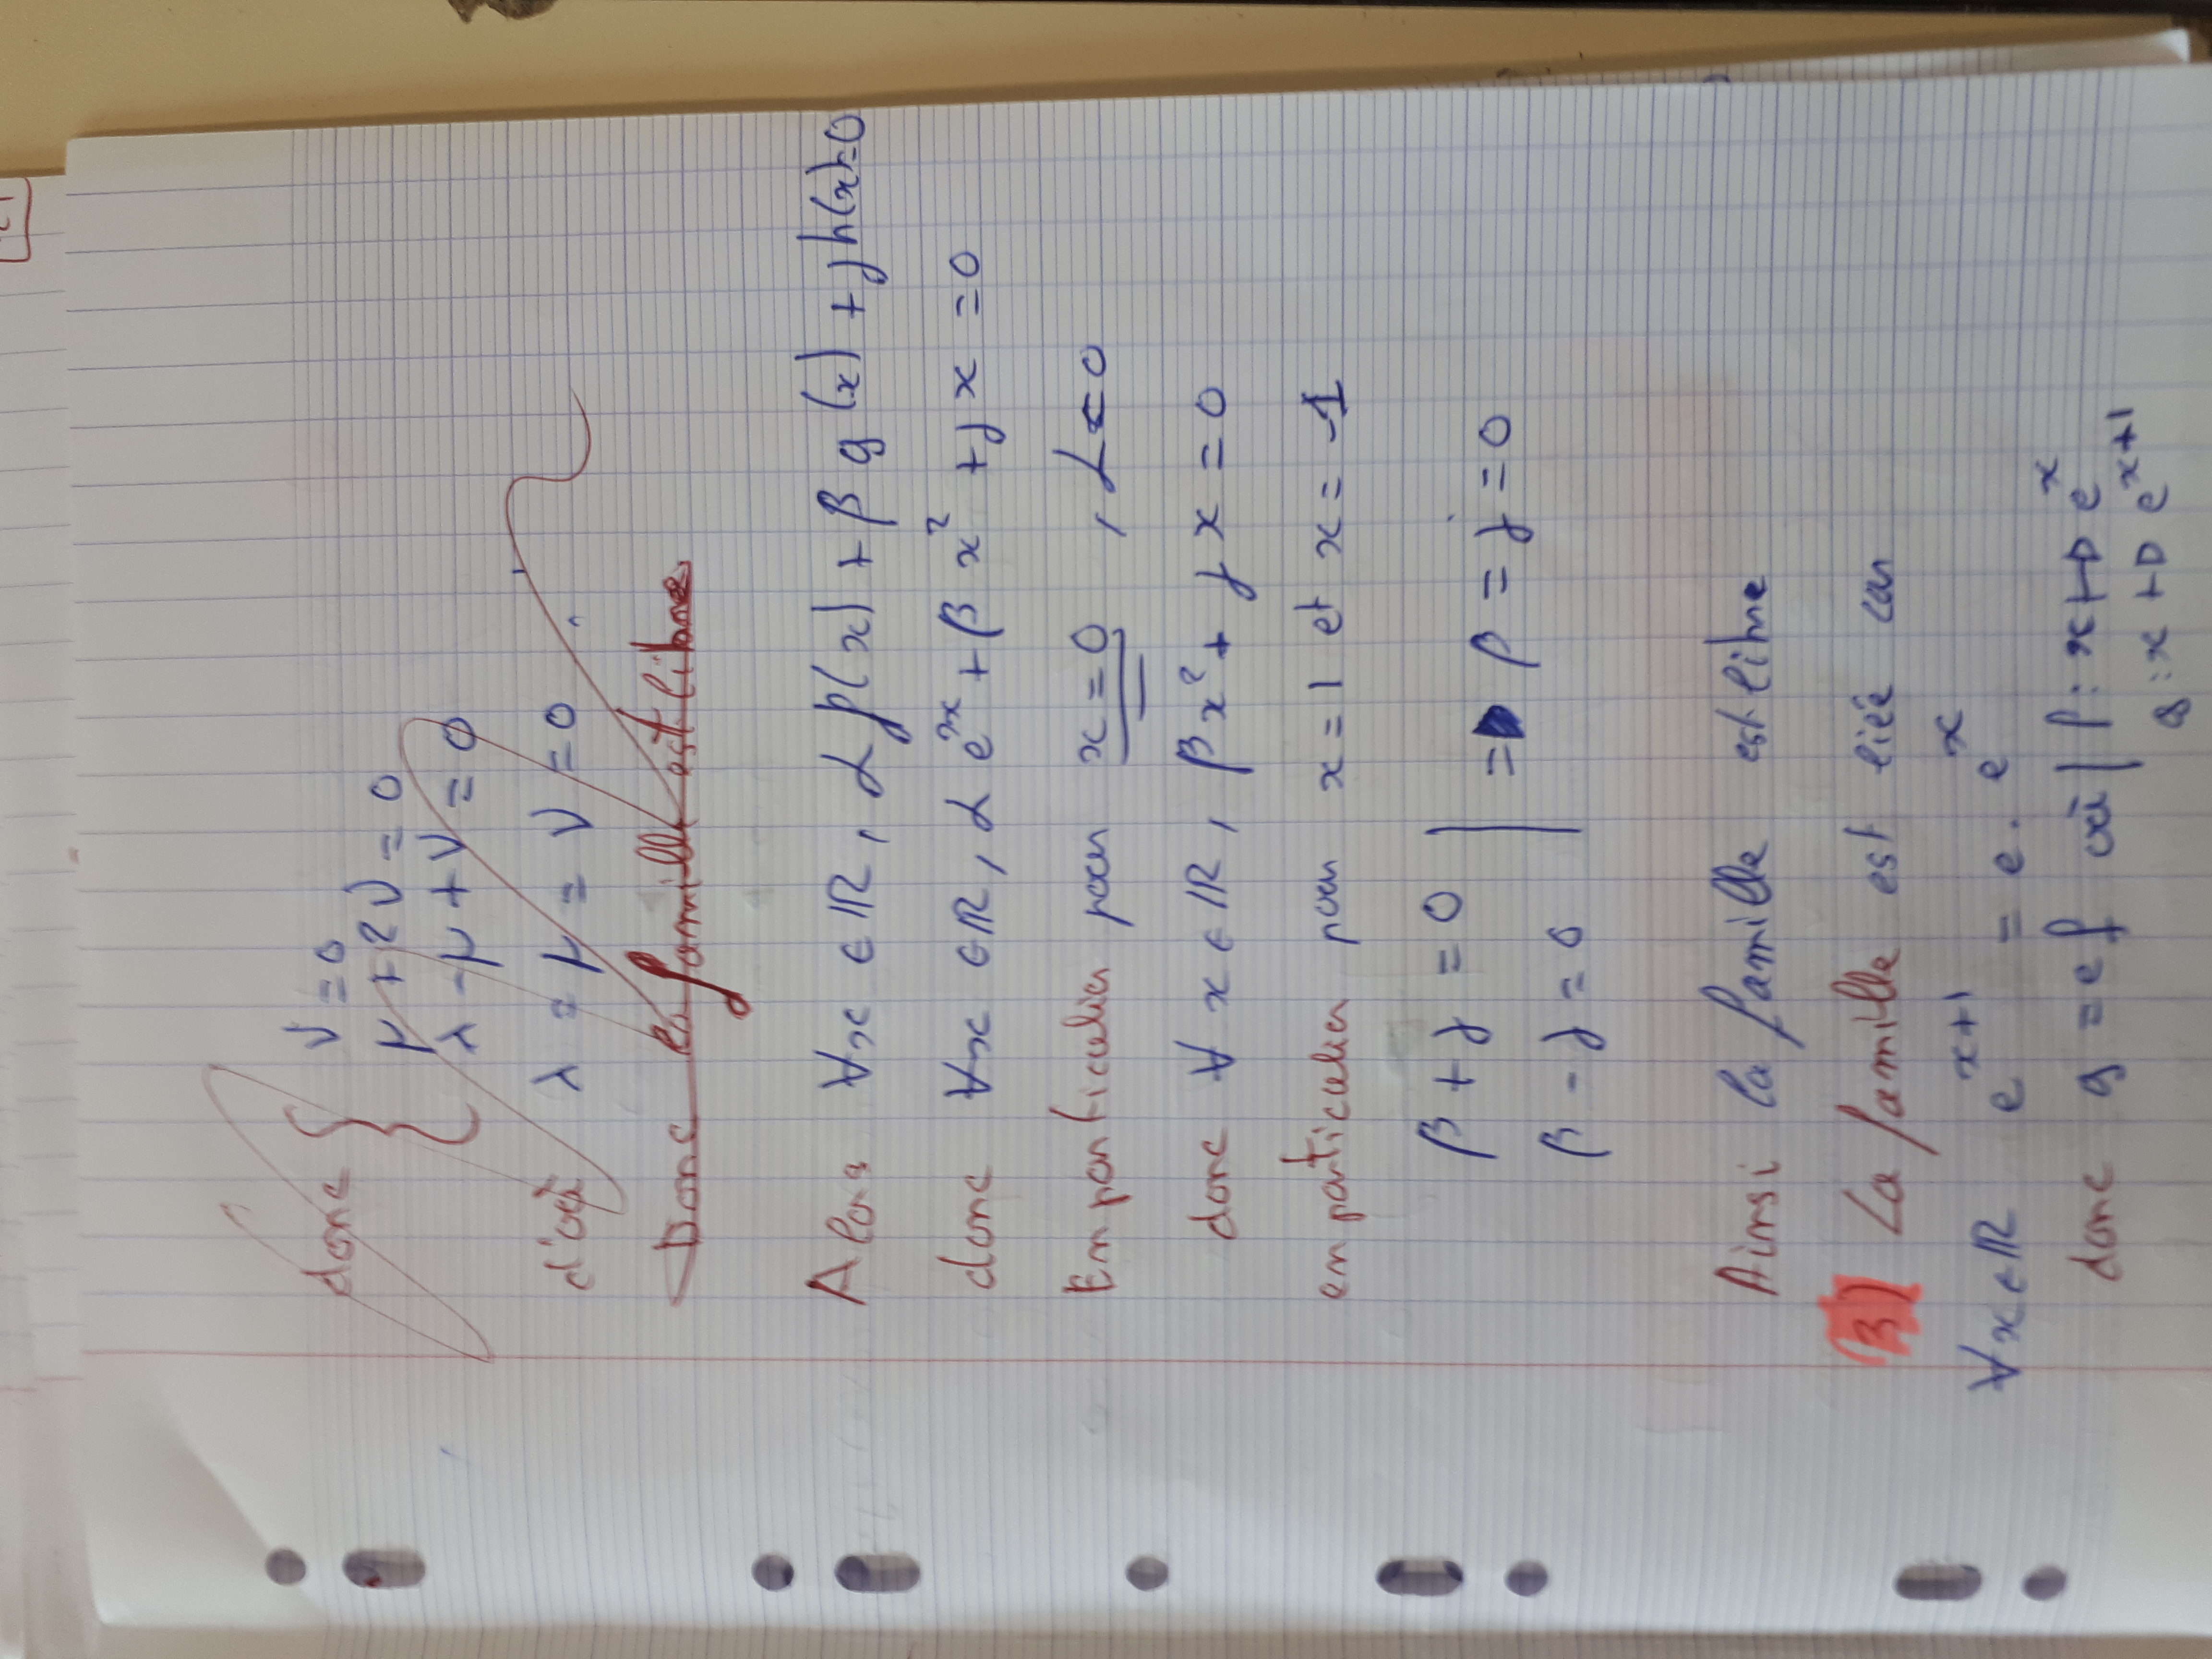 donc { ν = 0
μ + 2ν = 0
λ - μ + ν = 0
d'où λ = μ = ν = 0
Donc la famille est libre
Alors ∀x ∈ ℝ, α f(x) + β g(x) + γ h(x) = 0
donc ∀x ∈ ℝ, α e²ˣ + β x² + γ x = 0
En particulier pour x = 0, α = 0
donc ∀ x ∈ ℝ, β x² + γ x = 0
en particulier pour x = 1 et x = -1
β + γ = 0
β - γ = 0 | => β = γ = 0
Ainsi la famille est libre
3) La famille est liée car
∀x ∈ ℝ eˣ⁺¹ = e . eˣ
donc g = e f où | f : x ↦ eˣ
g : x ↦ eˣ⁺¹